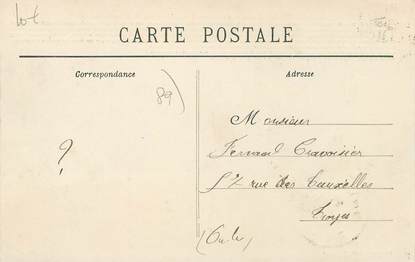 Lot
CARTE POSTALE
Correspondance
Adresse
89
?
Monsieur
Fernand Cravoisier
57 rue des Tauxelles
Troyes
(Aube)